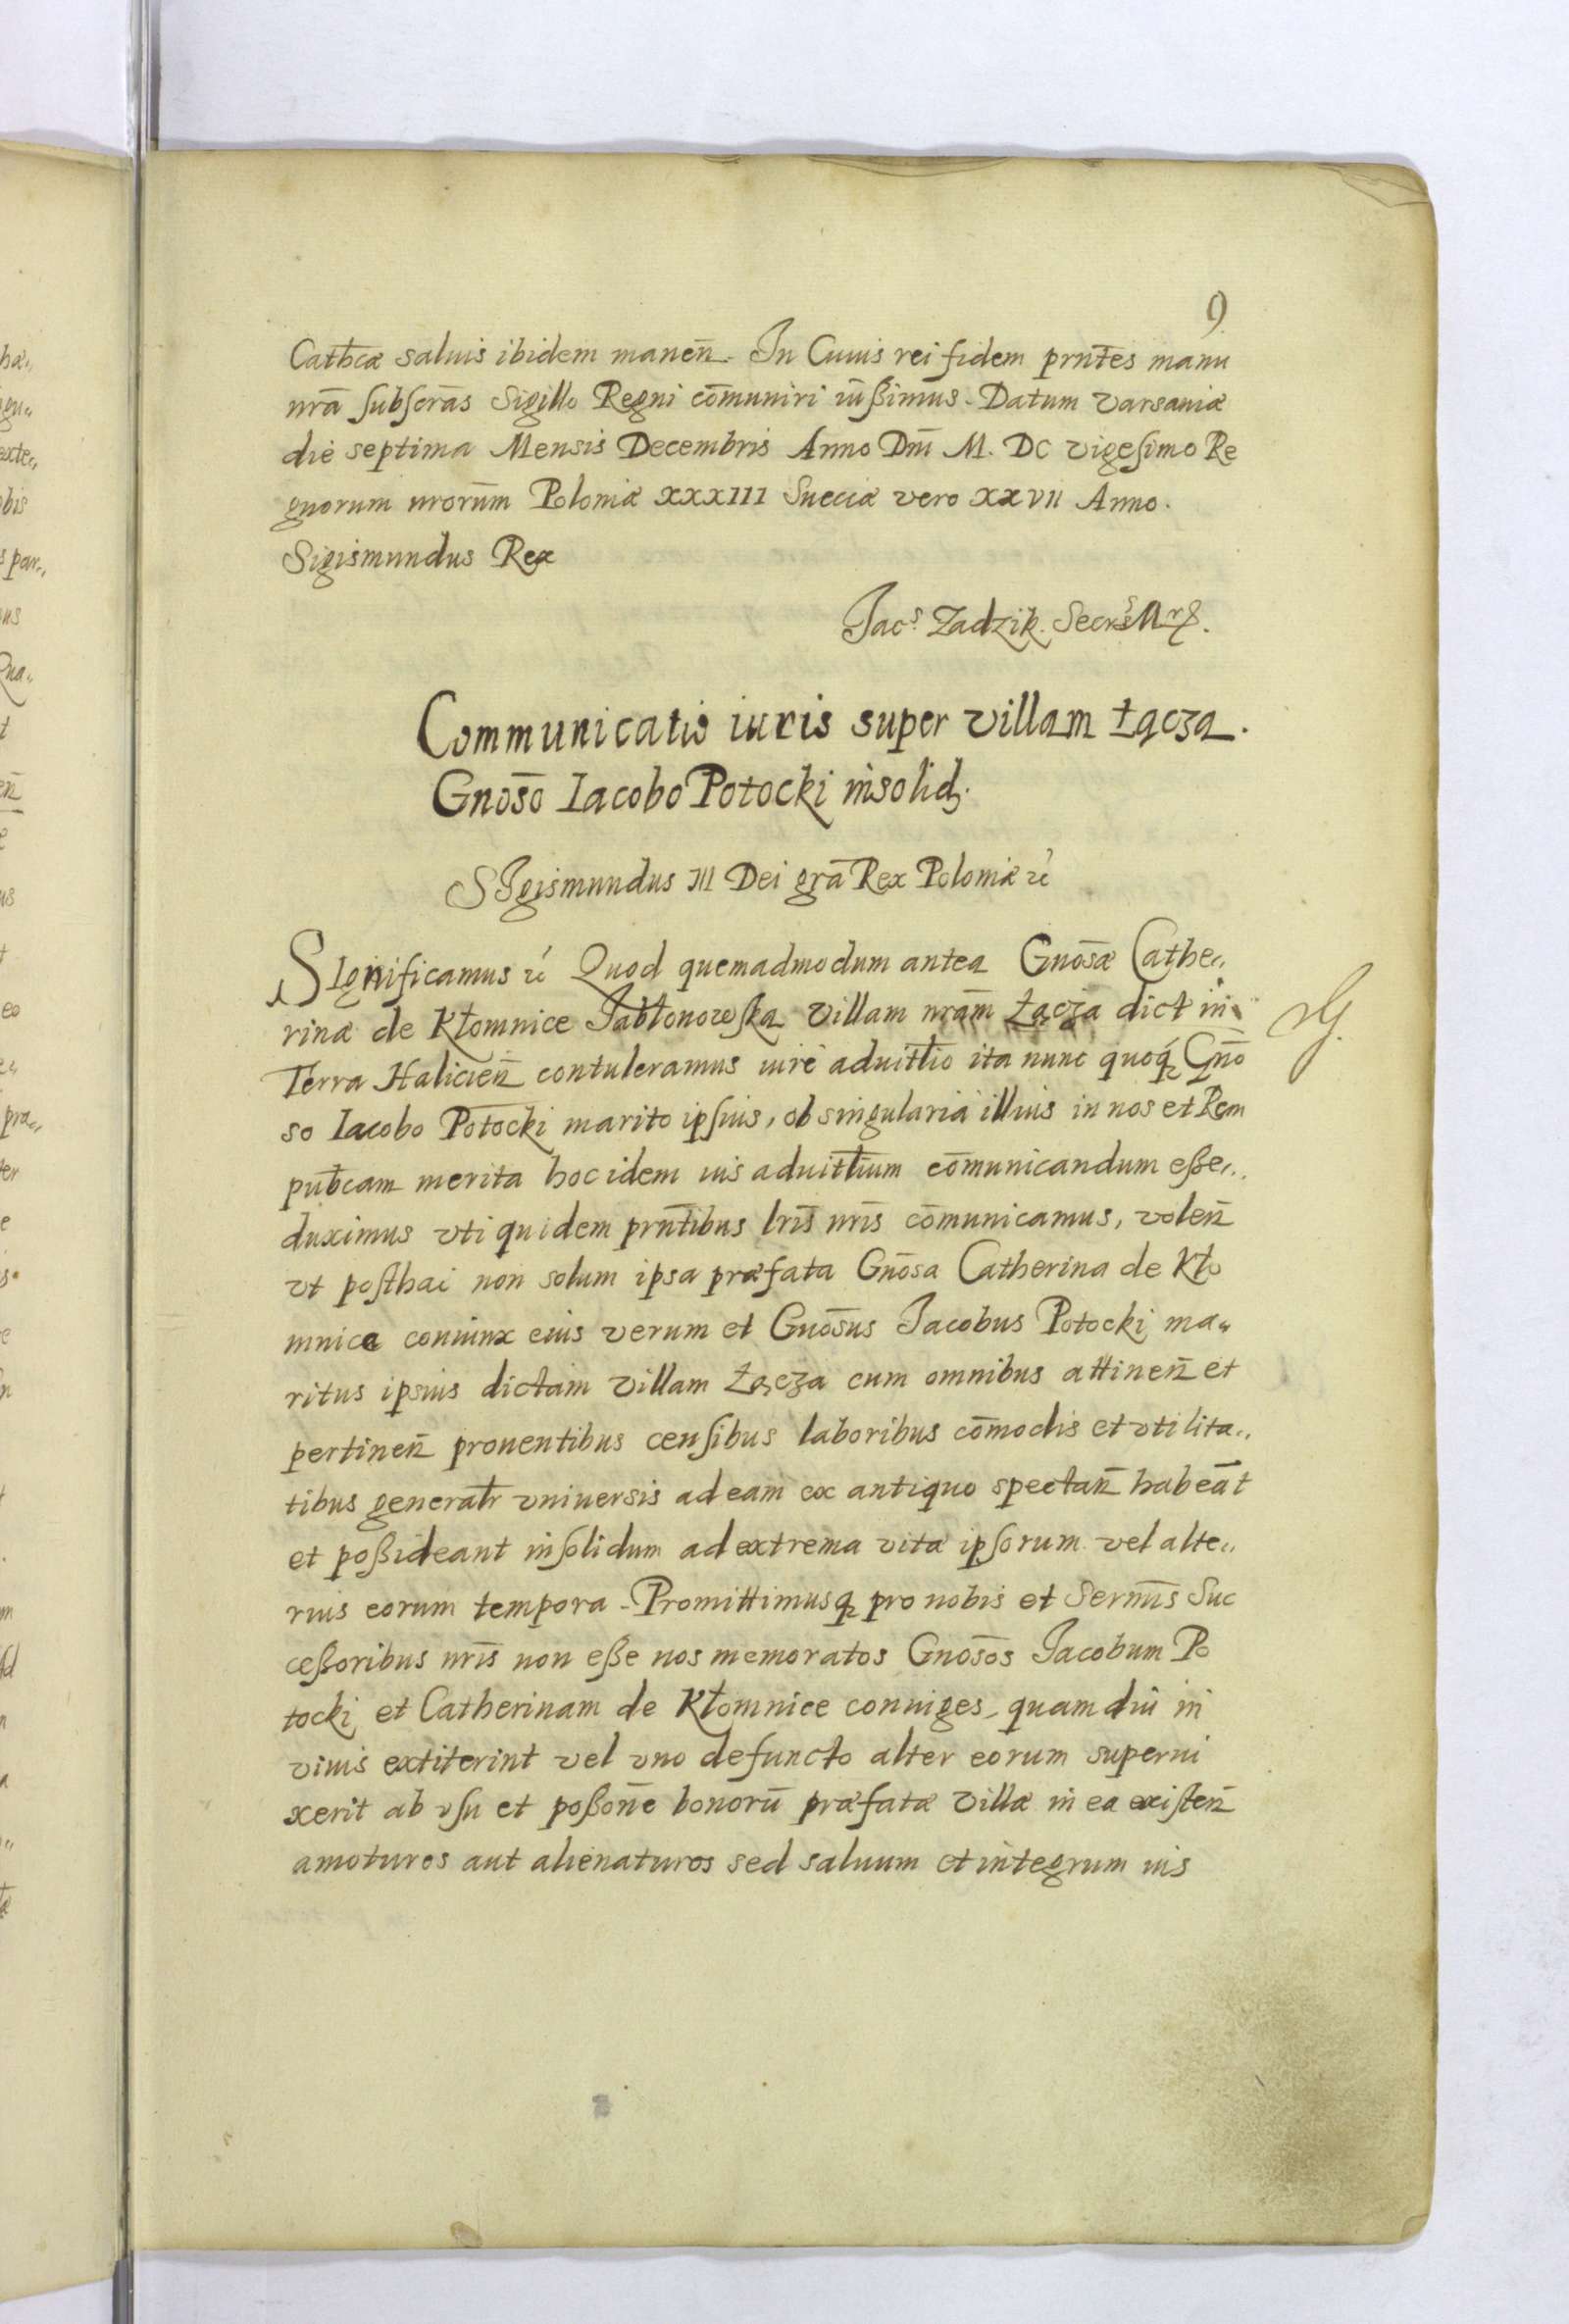 9
Cathcæ saluis ibidem manen̄. In Cuius rei fidem prn̄tes manu
nrā subscrās Sigillo Regni cōmuniri iūssimus. Datum varsauiæ
die septima Mensis Decembris Anno Dn̄i M. DC vigesimo Re
gnorum nrorūm Poloniæ XXXIII Sueciæ vero XXVII Anno.
Sigismundus Rex
Jacs Zadzik. Secrs
Communicatio iuris super villam Łącza.
Gnosō Iacobo Potocki insolid.
SIgismundus III Dei grā Rex Poloniæ rc
SIgnificamus rc Quod quemadmodum antea Gnōsæ Cathe„
rinæ de Kłomnice Jabłonowska villam nrām Łącza dict in
Terra Halicien̄ contuleramus iure aduitłio ita nunc quoq Gnō
so Iacobo Potocki marito ipsius, ob singularia illius in nos et Rem
pubcam merita hoc idem ius aduitłium cōmunicandum esse„
duximus vti quidem prn̄tibus lrīs nrīs cōmunicamus, volen̄
vt posthac non solum ipsa præfata Gnōsa Catherina de Kło
mnice coniunx eius verum et Gnōsus Jacobus Potocki ma„
ritus ipsius dictam villam Łącza cum omnibus attinen̄ et
pertinen̄ prouentibus censibus laboribus cōmodis et vtilita„
tibus generalr vniuersis ad eam ex antiquo spectan̄ habeāt
et possideant insolidum ad extrema vitæ ipsorum vel alte„
rius eorum tempora. Promittimusq pro nobis et Sernīs Suc
cessoribus nrīs non esse nos memoratos Gnosōs Jacobum Po
tocki et Catherinam de Kłomnice coniuges, quam diu in
viuis extiterint vel vno defuncto alter eorum superui
xerit ab vsu et possōne bonorū præfatæ villæ in ea existen̄
amoturos aut alienaturos sed saluum et integrum ius